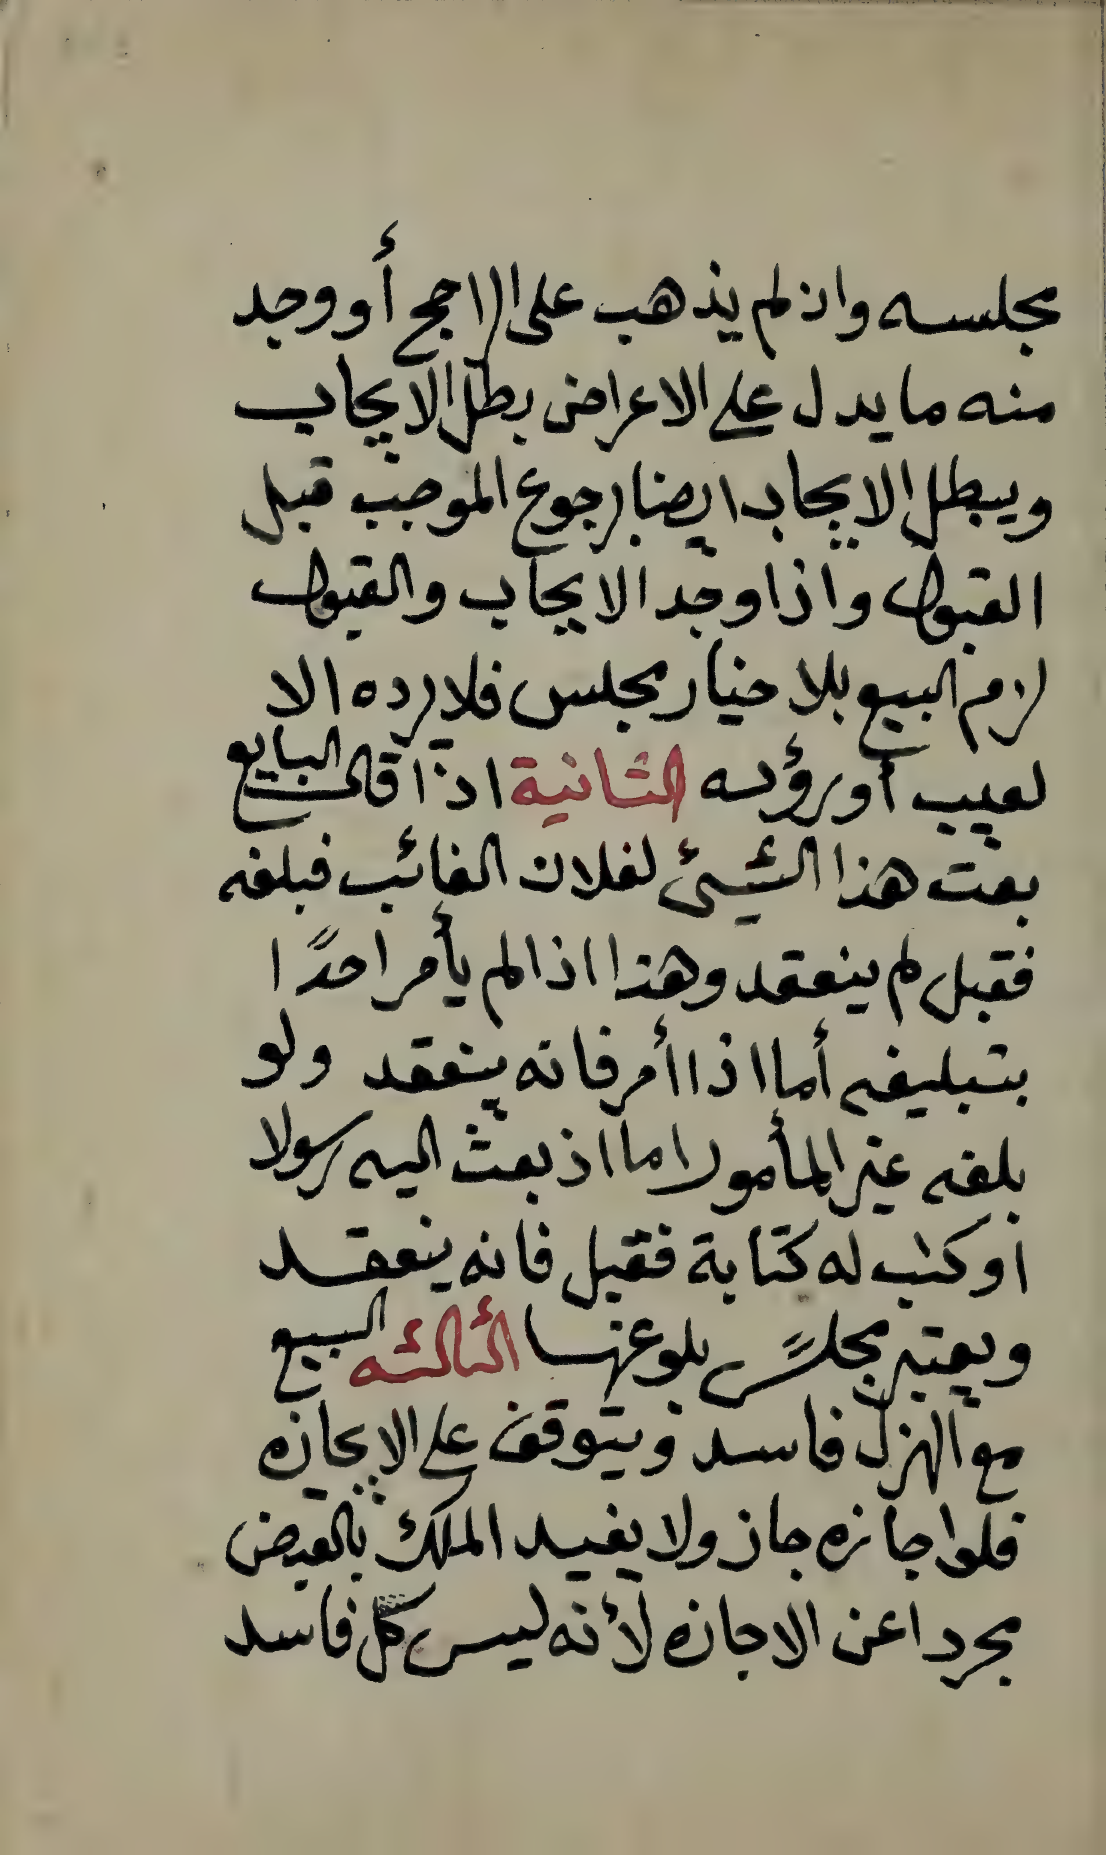 مجلسه وان لم يذهب على الراجح أو وجد
منه ما يدل على الاعراض بطل الايجاب
ويبطل الايجاب ايضا برجوع الموجب قبل
القبول واذا وجد الايجاب والقبول
لزم البيع بلا خيار مجلس فلا يرده الا
لعيب أو رؤية الثانية اذا قال البايع
بعت هذا الشيئ لفلان الغائب فبلغه
فقبل لم ينعقد وهذا اذا لم يأمر احدًا
بتبليغه أما اذا أمر فانه ينعقد ولو
بلغه غير المأمور اما اذ بعث اليه رسولا
او كتب له كتابة فقبل فانه ينعقد
ويعتبر مجلس بلوغها الثالثه البيع
مع الهزل فاسد ويتوقف على الايجازه
فلوا جازه جاز ولا يفيد الملك بالقبض
مجردا عن الاجازه لأنه ليس كل فاسد